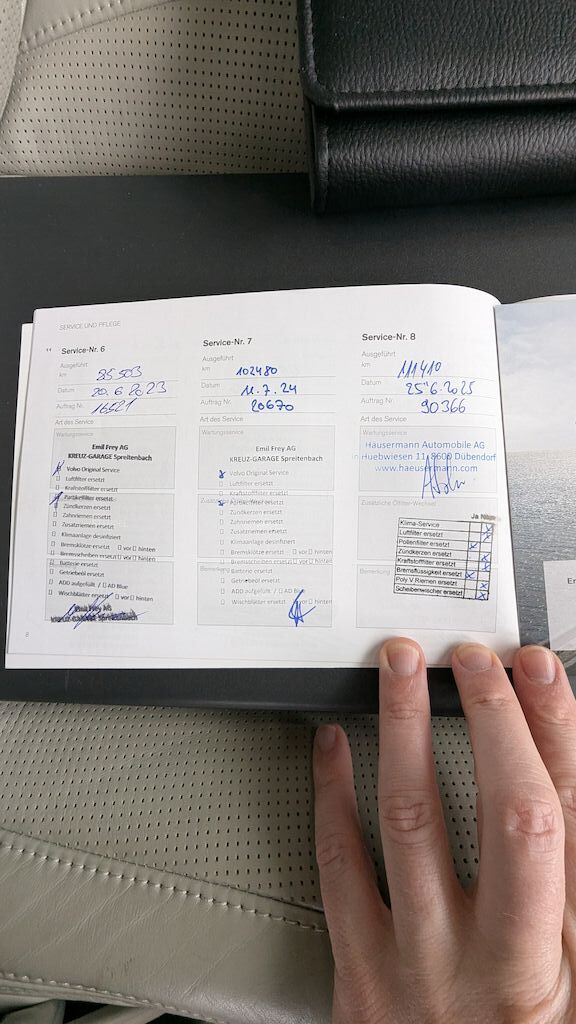 SERVICE UND PFLEGE
Service-Nr. 6
Ausgeführt
km 85503
Datum 20.6.2023
Auftrag Nr. 16521
Art des Service
Wartungsservice
Emil Frey AG
KREUZ-GARAGE Spreitenbach
Volvo Original Service
Luftfilter ersetzt
Kraftstofffilter ersetzt
Partikelfilter ersetzt
Zündkerzen ersetzt
Zahnriemen ersetzt
Zusatzriemen ersetzt
Klimaanlage desinfiziert
Bremsklötze ersetzt vor hinten
Bremsscheiben ersetzt vor hinten
Batterie ersetzt
Getriebeöl ersetzt
ADD aufgefüllt / AD Blue
Wischblätter ersetzt vor hinten
Emil Frey AG
KREUZ-GARAGE Spreitenbach
8
Service-Nr. 7
Ausgeführt
km 102480
Datum 11.7.24
Auftrag Nr. 20670
Art des Service
Wartungsservice
Emil Frey AG
KREUZ-GARAGE Spreitenbach
Volvo Original Service
Luftfilter ersetzt
Kraftstofffilter ersetzt
Partikelfilter ersetzt
Zündkerzen ersetzt
Zahnriemen ersetzt
Zusatzriemen ersetzt
Klimaanlage desinfiziert
Bremsklötze ersetzt vor hinten
Bremsscheiben ersetzt vor hinten
Batterie ersetzt
Getriebeöl ersetzt
ADD aufgefüllt / AD Blue
Wischblätter ersetzt vor hinten
Service-Nr. 8
Ausgeführt
km 111410
Datum 25.6.2025
Auftrag Nr. 90366
Art des Service
Wartungsservice
Häusermann Automobile AG
in Huebwiesen 11, 8600 Dübendorf
www.haeusermann.com
Zusätzliche Ölfilter-Wechsel
Ja Nein
Klima-Service
Luftfilter ersetzt
Pollenfilter ersetzt
Zündkerzen ersetzt
Kraftstofffilter ersetzt
Bremsflüssigkeit ersetzt
Poly V Riemen ersetzt
Scheibenwischer ersetzt
Bemerkung